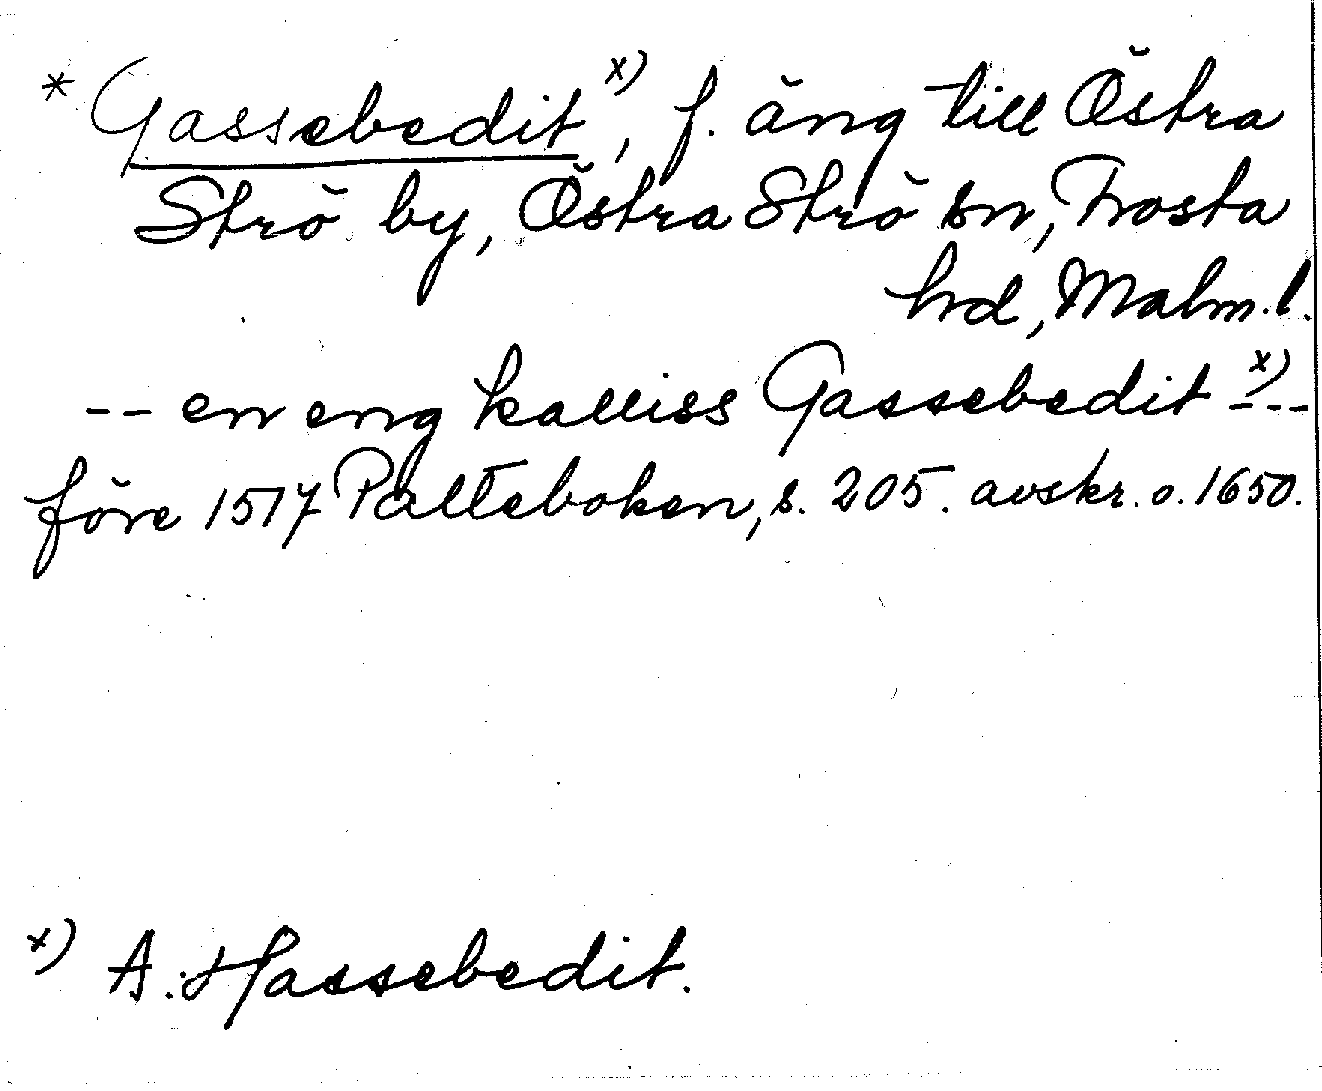 * Gassebedit x), f. äng till Östra
Strö by, Östra Strö sn, Frosta
hrd, Malm.l.
-- en eng kalliss Gassebedit x) ---
före 1517 Palteboken, s. 205. avskr. o. 1650.
x) A. Hassebedit.